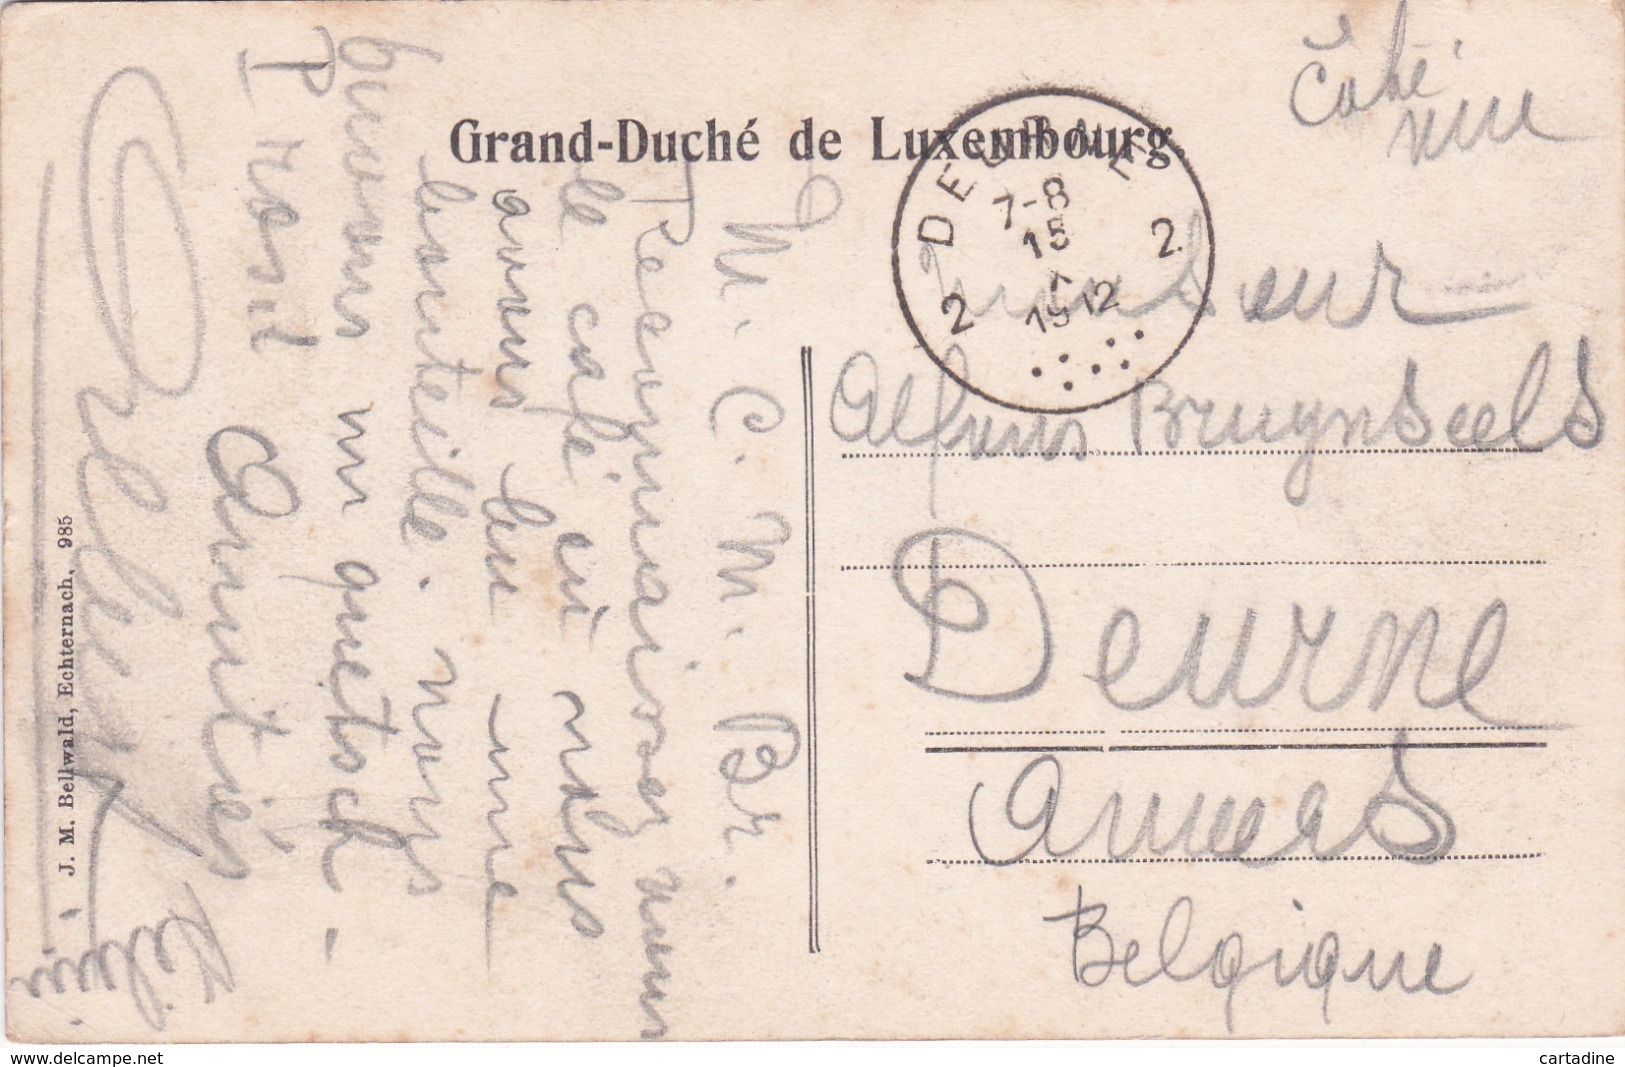 Côté
vue
Grand-Duché de Luxembourg.
DEURNE
7-8
15
1912
2 2
Monsieur
Alfons Bruynseels
Deurne
Anvers
Belgique
M. C. M. Br.
Reconnaissez vous
le café où nous
avons bu une
bouteille. nous
buvons un quetsch.
Amitiés
J. M. Bellwald, Echternach. 985
cartadine
https://www.delcampe.net